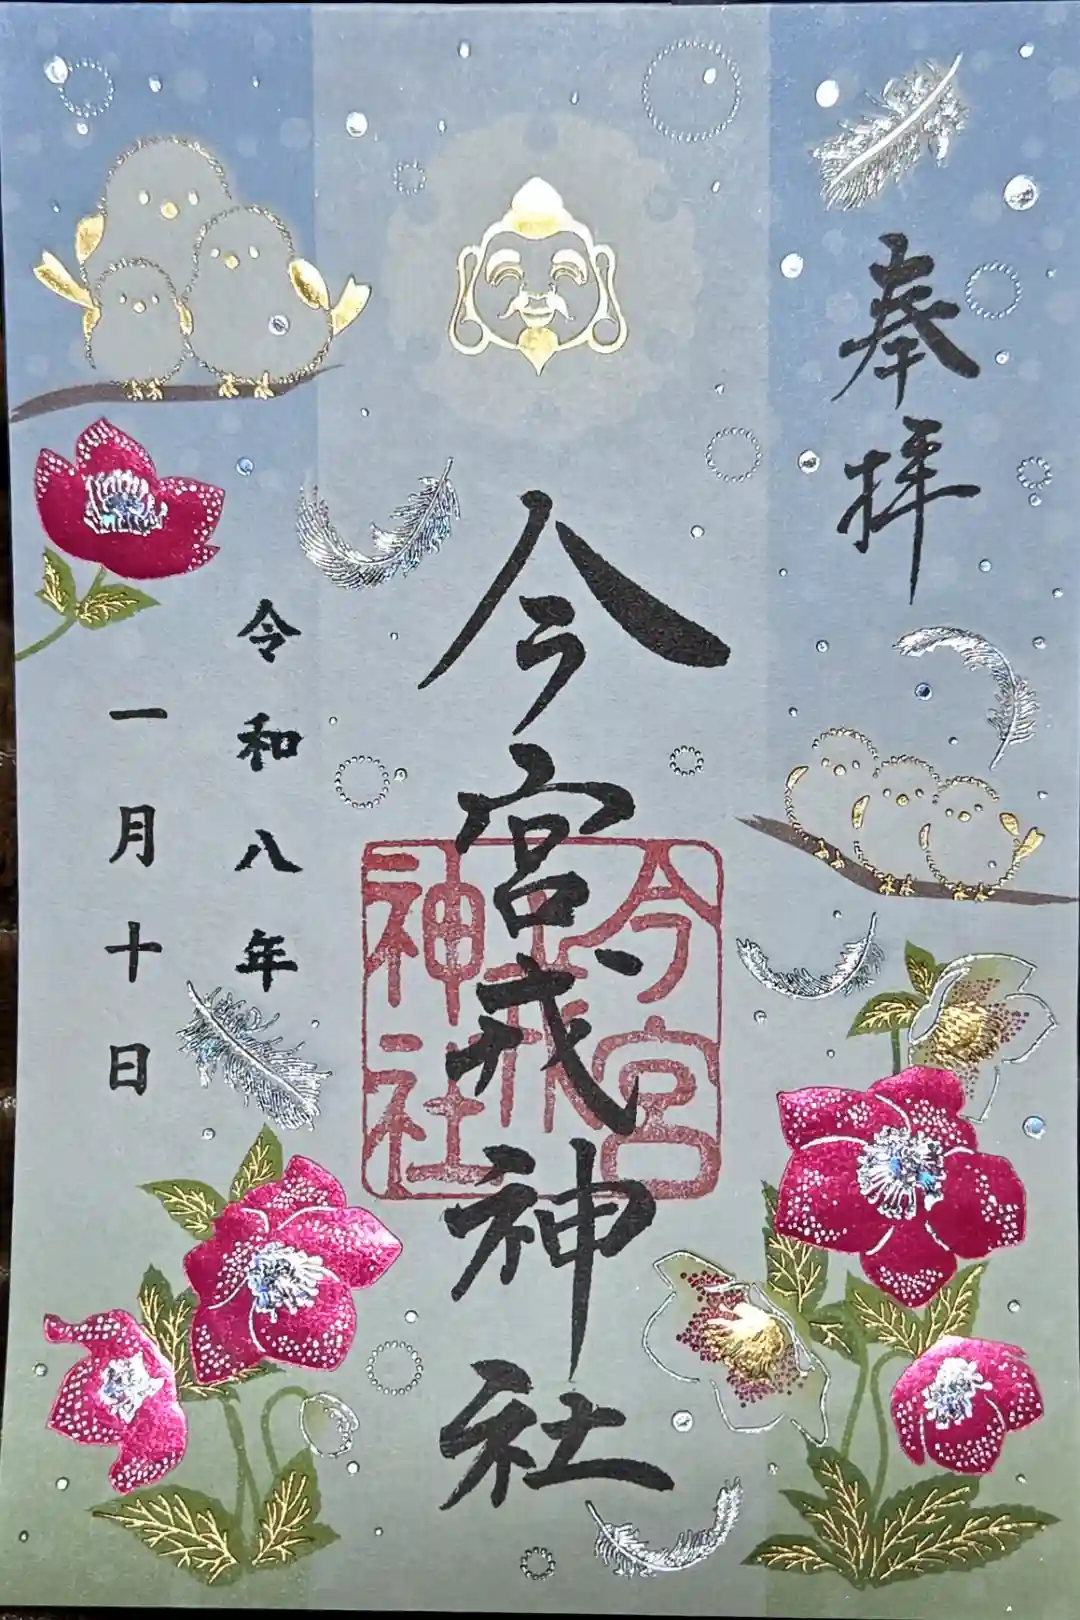 奉拝
今宮戎神社
今宮
戎
神社
令和八年
一月十日